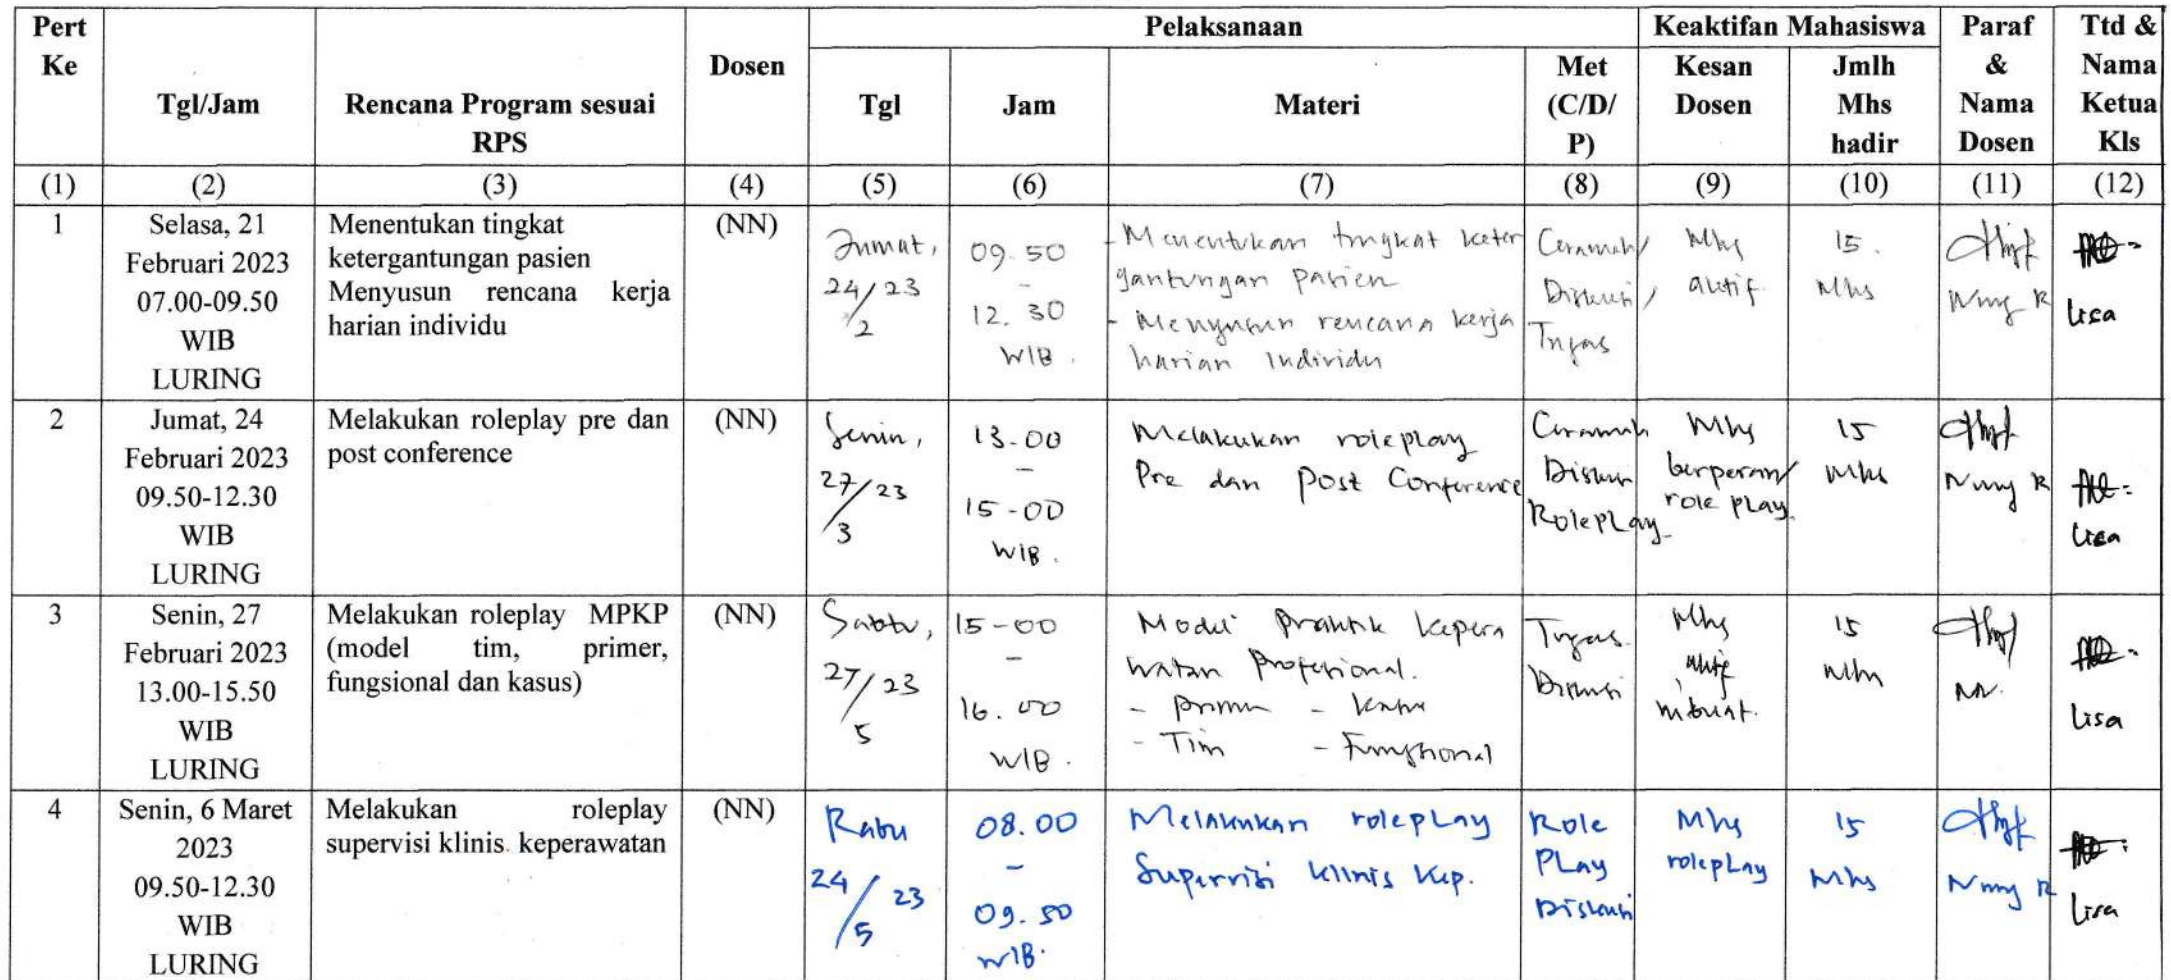 Pert Ke
Tgl/Jam
Rencana Program sesuai RPS
Dosen
Pelaksanaan
Keaktifan Mahasiswa
Paraf & Nama Dosen
Ttd & Nama Ketua Kls
Tgl
Jam
Materi
Met (C/D/P)
Kesan Dosen
Jmlh Mhs hadir
(1)
(2)
(3)
(4)
(5)
(6)
(7)
(8)
(9)
(10)
(11)
(12)
1
Selasa, 21
Februari 2023
07.00-09.50
WIB
LURING
Menentukan tingkat
ketergantungan pasien
Menyusun rencana kerja
harian individu
(NN)
Jumat,
24/23
2
09.50
-
12.30
WIB.
- Menentukan tingkat keter
gantungan pasien
- Menyusun rencana kerja
harian Individu
Ceramah/
Diskusi,
Tugas
Mhs
aktif
15.
Mhs
Nuny R
Lisa
2
Jumat, 24
Februari 2023
09.50-12.30
WIB
LURING
Melakukan roleplay pre dan
post conference
(NN)
Senin,
27/23
3
13-00
-
15-00
WIB.
Melakukan roleplay
Pre dan Post Conference
Ceramah
Diskusi
RolePlay
Mhs
berperan/
role play.
15
Mhs
Nuny R
Lisa
3
Senin, 27
Februari 2023
13.00-15.50
WIB
LURING
Melakukan roleplay MPKP
(model tim, primer,
fungsional dan kasus)
(NN)
Sabtu,
27/23
5
15-00
-
16.00
WIB.
Model Praktik Kepera
watan Profesional.
- Primer - Kasus
- Tim - Fungsional
Tugas
Diskusi
Mhs
aktif
15
Mhs
NR.
Lisa
4
Senin, 6 Maret
2023
09.50-12.30
WIB
LURING
Melakukan roleplay
supervisi klinis keperawatan
(NN)
Rabu
24/23
5
08.00
-
09.50
WIB.
Melakukan roleplay
Supervisi klinis Kep.
Role
Play
Diskusi
Mhs
roleplay
15
Mhs
Nuny R
Lisa